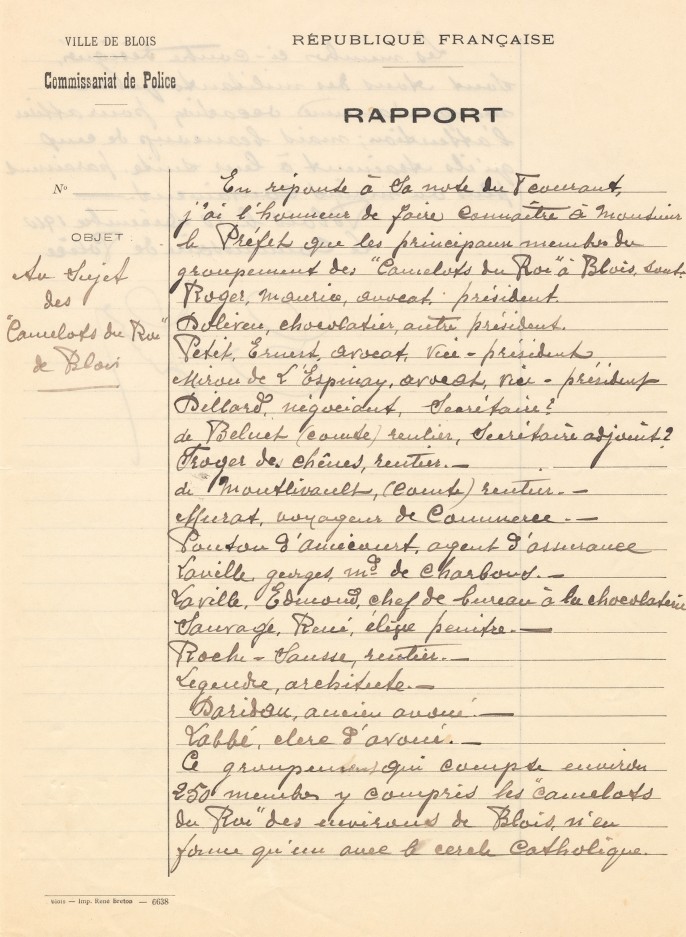 VILLE DE BLOIS
Commissariat de Police
RÉPUBLIQUE FRANÇAISE
RAPPORT
N°
OBJET
Au Sujet
des
"Camelots du Roi"
de Blois
En réponse à sa note du 7 courant,
j'ai l'honneur de faire connaître à Monsieur
le Préfet que les principaux membres du
groupement des "Camelots du Roi" à Blois, sont:
Roger, Maurice, avocat, président.
Poliveu, chocolatier, autre président.
Petit, Ernest, avocat, vice-président
Mirou de L'Espinay, avocat, vice-président
Dillard, négociant, Secrétaire?
de Beluet (comte) rentier, Secrétaire adjoint?
Troger des chênes, rentier.—
de Montlivault, (Comte) rentier.—
Murat, voyageur de Commerce.—
Ponton d'amécourt, agent d'assurance
Laville, georges, md de charbons.—
Laville, Edmond, chef de bureau à la chocolaterie
Sauvage, René, élève peintre.—
Roche-Sausse, rentier.—
Legendre, architecte.—
Daridan, ancien avoué.—
Labbé, clerc d'avoué.—
Ce groupement qui compte environ
250 membres y compris les "Camelots
du Roi" des environs de Blois, n'en
forme qu'un avec le cercle Catholique.
BLOIS — Imp. René Breton — 6638